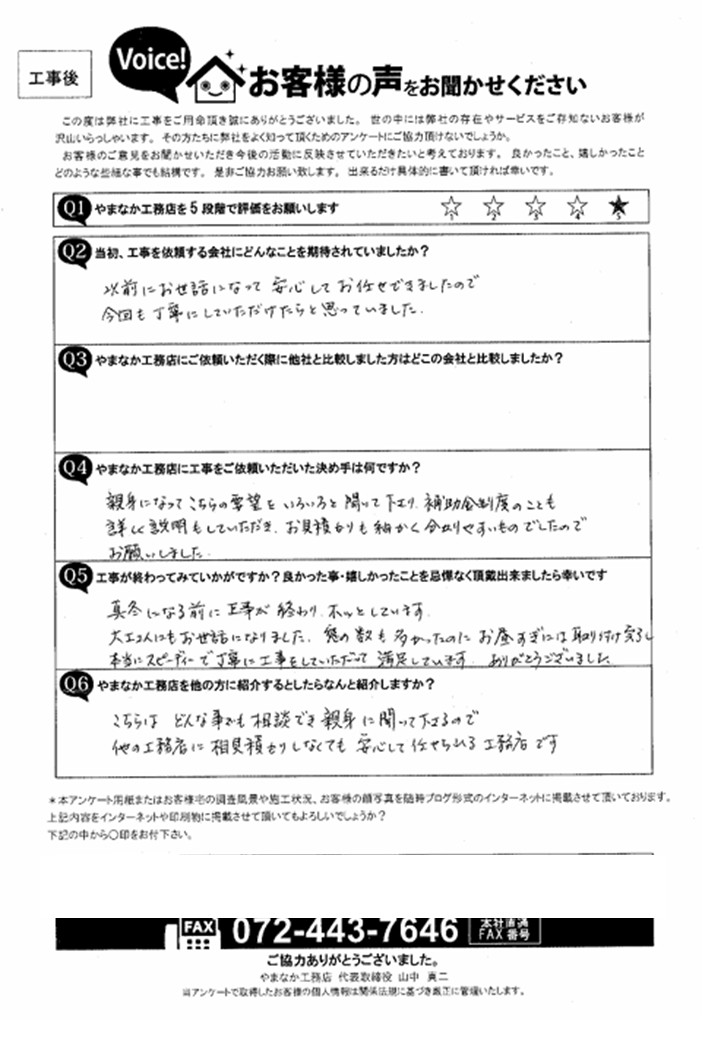 工事後
Voice!
お客様の声をお聞かせください
この度は弊社に工事をご用命頂き誠にありがとうございました。 世の中には弊社の存在やサービスをご存知ないお客様が
沢山いらっしゃいます。 その方たちに弊社をよく知って頂くためのアンケートにご協力頂けないでしょうか。
お客様のご意見をお聞かせいただき今後の活動に反映させていただきたいと考えております。 良かったこと、嬉しかったこと
どのような些細な事でも結構です。 是非ご協力お願い致します。 出来るだけ具体的に書いて頂ければ幸いです。
Q1 やまなか工務店を5段階で評価をお願いします ☆1 ☆2 ☆3 ☆4 ★5
Q2 当初、工事を依頼する会社にどんなことを期待されていましたか？
以前にお世話になって 安心してお任せできましたので
今回も丁寧にしていただけたらと思っていました.
Q3 やまなか工務店にご依頼いただく際に他社と比較しました方はどこの会社と比較しましたか？
Q4 やまなか工務店に工事をご依頼いただいた決め手は何ですか？
親身になってこちらの要望をいろいろと聞いて下さり、補助金制度のことも
詳しく説明もしていただき、お見積もりも細かく分かりやすいものでしたので
お願いしました.
Q5 工事が終わってみていかがですか？良かった事・嬉しかったことを忌憚なく頂戴出来ましたら幸いです
真冬になる前に工事が終わり、ホッとしています.
大工さんにもお世話になりました. 窓の数も多かったのにお昼すぎには取り付け完了し
本当にスピーディーで丁寧に工事をしていただいて 満足しています. ありがとうございました
Q6 やまなか工務店を他の方に紹介するとしたらなんと紹介しますか？
こちらは どんな事でも相談でき親身に聞いて下さるので
他の工務店に相見積もりしなくても安心して任せられる工務店です
＊本アンケート用紙またはお客様宅の調査風景や施工状況、お客様の顔写真を随時ブログ形式のインターネットに掲載させて頂いております。
上記内容をインターネットや印刷物に掲載させて頂いてもよろしいでしょうか？
下記の中から〇印をお付下さい。
FAX 072-443-7646 本社直通
FAX番号
ご協力ありがとうございました。
やまなか工務店 代表取締役 山中 真二
※アンケートで取得したお客様の個人情報は関係法規に基づき厳正に管理いたします。